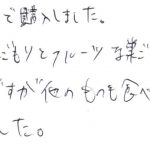 で購入しました。
ごもりとフルーツな菓ご
すが他のものも食べ
した。